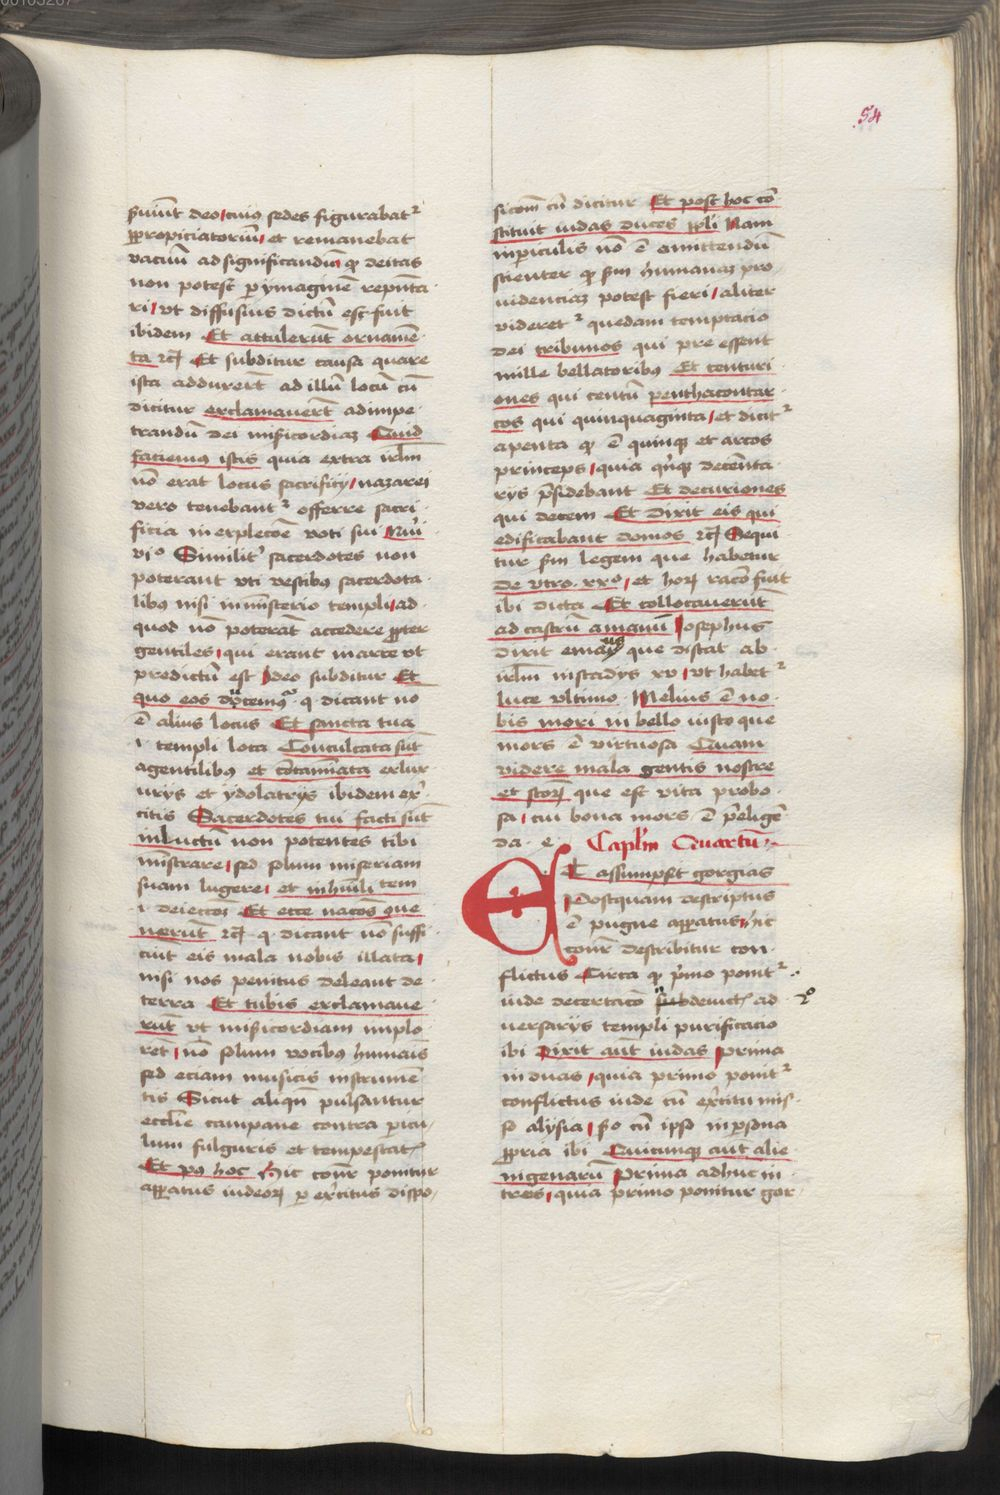 54
s̄uiūt deo cuiꝰ sedes figurabatᷣ
ꝓpropiciatoriū et remanebat
vacuū ad significandū ꝙ deitas
non potest ꝑ ymaginē reputa
ri vt diffusius dictū est fuit
ibidem Et attulerūt ornamē
ta ⁊cꝫ Et subditur causa quare
ista adducerēt ad illū locū cū
dicitur exclamauerēt ad impe
trandū dei misericordiaꝫ Quid
faciemꝰ istis quia extra irl̄m
nō erat locus sacrificij nazarei
vero tenebantᷣ offerre sacri
ficia in expleccōe voti sui Nūi
vi⁰ Similitʳ sacerdotes non
poterant vti vestibꝰ sacerdota
libꝰ nisi in mīsterio templi ad
quod nō poterāt accedere ꝓpter
gentiles qui erant in arce vt
predictū est Ideo subditur Et
quo eos ducemꝰ q. dicant nō
ē alius locus Et sancta tua
i. templi loca Conculcata sūt
a gentilibꝰ et cōtamīata exlux
urijs et ydolatrijs ibidem exʳ
citis Sacerdotes tui facti sūt
in luctū non potentes tibi
mīstrare sed solum miseriam
suam lugere et in hūilitatem
i. deieccōꝫ Et ecce nacōes que
nerūt ⁊cꝫ q. dicant nō suffi
ciūt eis mala nobis illata
nisi nos penitus deleant de
terra Et tubis exclamaue
rūt vt misericordiam implo
rēt nō solum vocibꝰ humaīs
sed eciam musicis instrumē
tis Sicut aliqn̄ pulsantur
ecclīe campane contra picu
lum fulguris et tempestatꝭ
Et pꝰ hoc Hic cōnr ponitur
apparatus iudeoꝝ ꝑ exʳcitus dispo
sicōm cū dicitur Et post hoc cō
stituit iudas duces ppl̄i Nam
in piculis nō ē omittendū
scienter ꝙ sm̄ humanaꝫ pro
uidenciaꝫ potest fieri aliter
videretᷣ quedam temptacio
dei tribunos qui pre essent
mille bellatoribꝰ Et centuri
ones qui centū penthacontar
cos qui quinquaginta et dicitᷣ
a penta ꝙ ē quinqꝫ et arcos
princeps quia qn̄qꝫ decenta
rijs p̄sidebant Et decuriones
qui decem Et dixit eis qui
edificabant domos ⁊cꝫ Sequi
tur sm̄ legem que habetur
de vtro. xx⁰ et hoꝝ racō fuit
ibi dicta Et collocauerūt
ad castrū amaum̄ Josephus
dixit emaꝰ que distat ab
irl̄m in stadijs xv vt habetᷣ
luce vltimo Melius ē no
bis mori in bello iusto que
mors ē virtuosa Quam
videre mala gentis nostre
et scoꝝ que est vita probo
sa cui bona mors ē p̄eligē
da. ē Capl̄m Quartū
Et assumpsit gorgias
Postquam descriptus
ē pugne apparatus hic
cōnr describitur con
flictus Circa ꝙ p̄mo ponitᷣ
iude decertacō sub deuictꝭ ad
2⁰
uersarijs templi purificacio
ibi Dixit aut̄ iudas Prima
in duas quia primo ponitᷣ
conflictus iude cū exʳcitu mis
so a lysia so cū ipso in ꝑsona
ꝓpria ibi Quicunqꝫ aut alie
nigenarū Prima adhuc in
tres quia primo ponitur gor